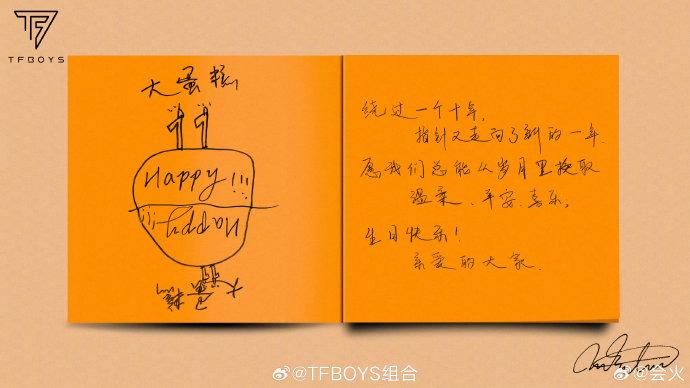 TFBOYS
大蛋糕
11
Happy!!!
Happy!!!
大蛋糕
绕过一个十年,
指针又走向了新的一年.
愿我们总能从岁月里换取
温柔、平安、喜乐。
生日快乐!
亲爱的大家.
@TFBOYS组合
@会火